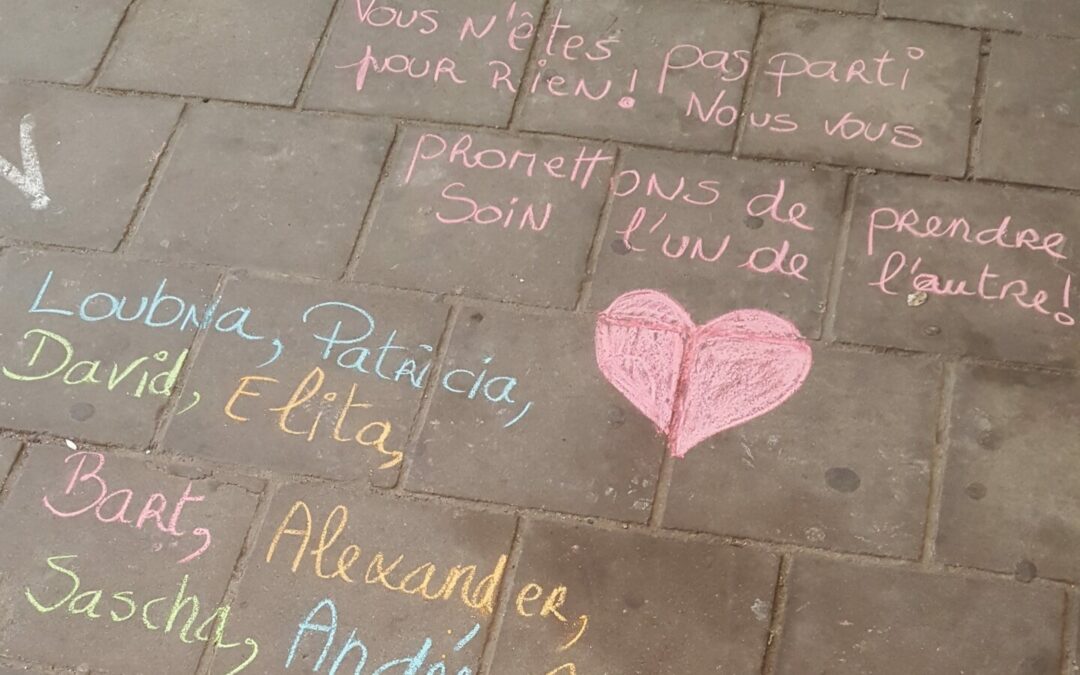 Vous n'êtes pas parti
pour rien! Nous vous
promettons de prendre
soin l'un de l'autre!
Loubna, Patricia,
David, Elita,
Bart, Alexander,
Sascha,